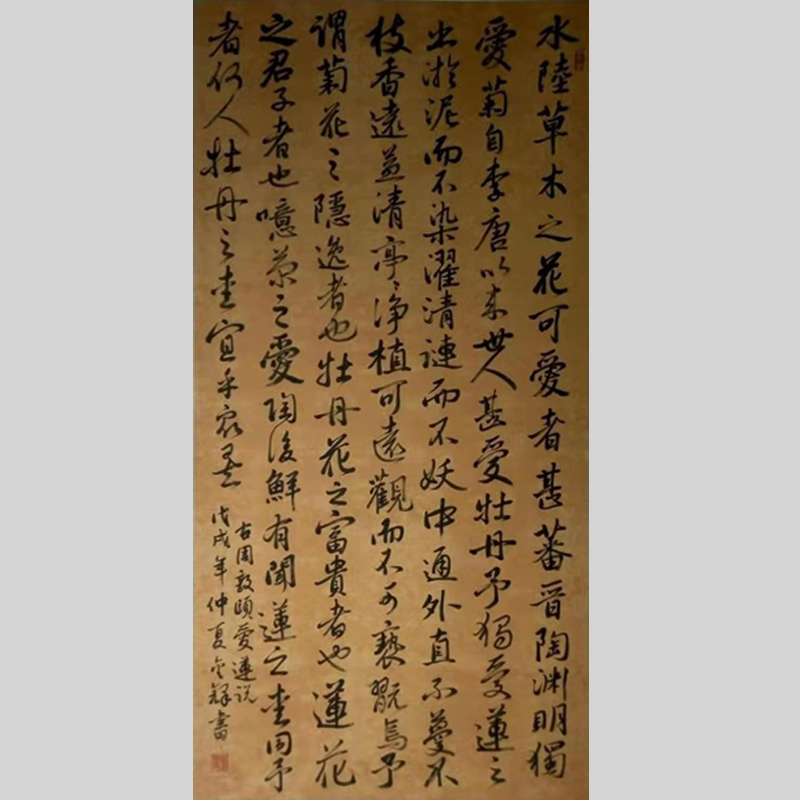 水陸草木之花可愛者甚蕃晉陶淵明獨
愛菊自李唐以来世人甚愛牡丹予獨愛蓮之
出淤泥而不染濯清漣而不妖中通外直不蔓不
枝香遠益清亭亭净植可遠觀而不可褻翫焉予
謂菊花之隱逸者也牡丹花之富貴者也蓮花
之君子者也噫菊之愛陶後鮮有聞蓮之愛同予
者何人牡丹之愛宜乎衆矣
古周敦頤愛蓮説
戊戌年仲夏金鋒書